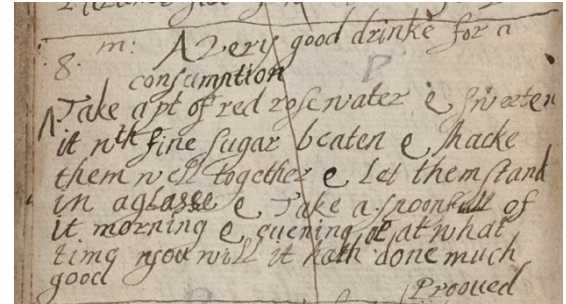 8. m: A very good drinke for a
consumption
Take a pt of red rose water & sweeten
it wth fine sugar beaten & shacke
them well together & Let them stand
in a glasse & Take a spoonfull of
it morning & euening or at what
time you will it hath done much
good
Prooued